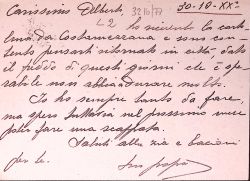 Carissimo Gilberto, 30-10-XX°
L2 3210/77
ho ricevuto la cartolina da Costamezzana e sono contento pensarti ritornato in città dato il freddo di questi giorni che è sperabile non abbia a durare molto.
Io ho sempre tanto da fare ma spero tuttavia nel prossimo mese poter fare una scappata.
Saluti alla zia e bacioni per te.